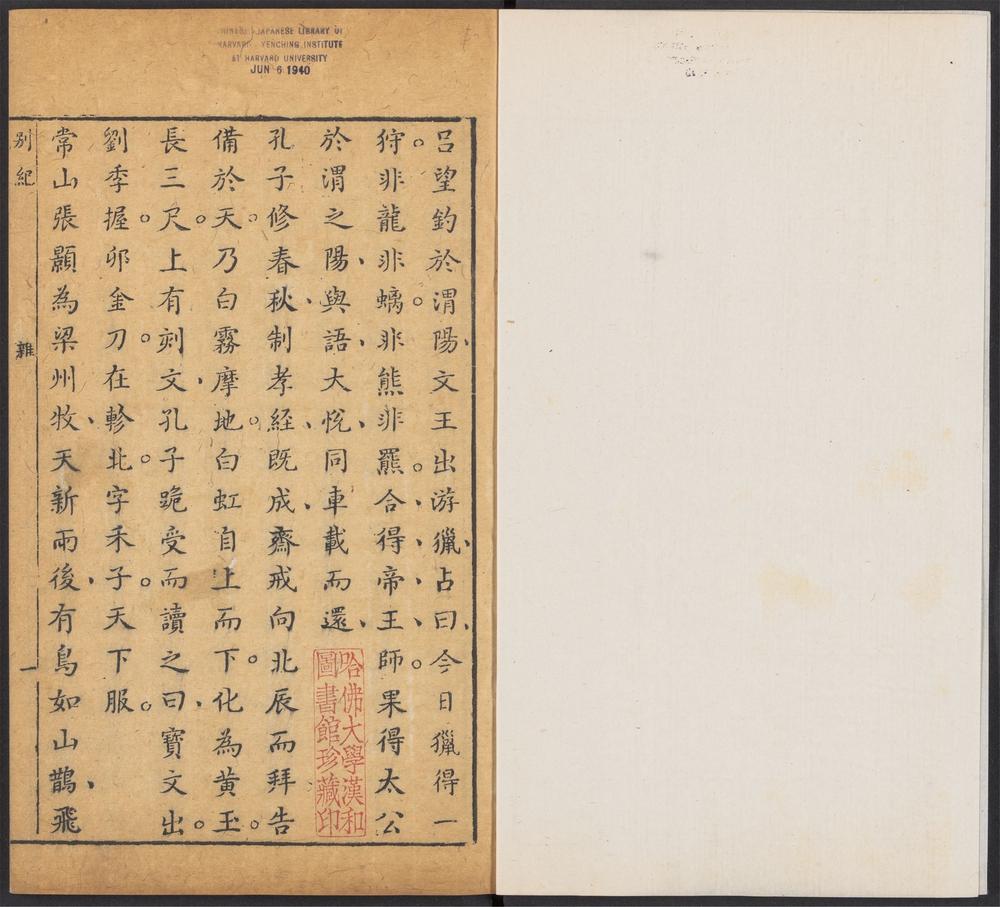 CHINESE JAPANESE LIBRARY OF
HARVARD YENCHING INSTITUTE
AT HARVARD UNIVERSITY
JUN 6 1940
吕望釣於渭陽文王出游獵占曰今日獵得一
狩非龍非螭非熊非羆合得帝王師果得太公
於渭之陽與語大悅同車載而還
哈佛大學漢和
圖書館珍藏印
孔子修春秋制孝経既成齋戒向北辰而拜告
備於天乃白霧摩地白虹自上而下化為黄玉
長三尺上有刻文孔子跪受而讀之曰寶文出
劉季握卯金刀在軫北字禾子天下服
常山張顥為梁州牧天新雨後有鳥如山鵲飛
别紀
雜
一